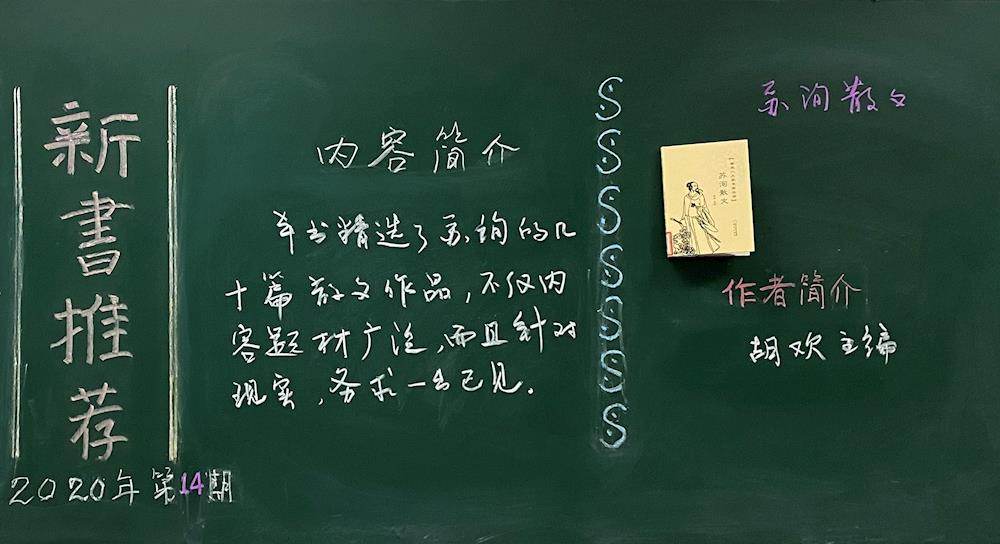 新書推荐
2020年第14期
内容简介
本书精选了苏洵的几
十篇散文作品,不仅内
容题材广泛,而且针对
现实,务求一出己见.
SSSSSSSS
苏洵散文
苏洵散文
作者简介
胡欢主编